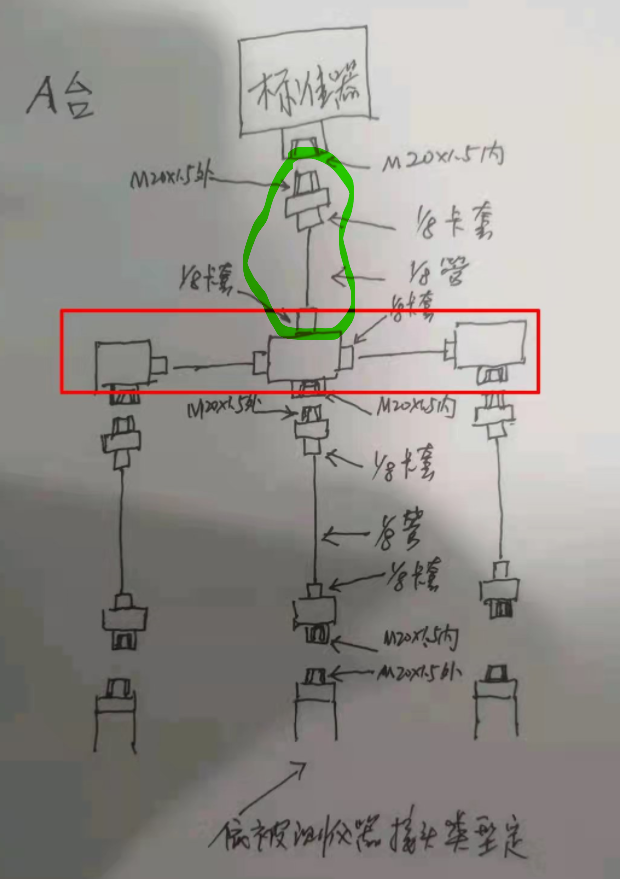 A台
标准器
M20x1.5内
M20x1.5外
1/8卡套
1/8管
1/8卡套
1/8卡套
M20x1.5外
M20x1.5内
1/8卡套
1/8管
1/8卡套
M20x1.5内
M20x1.5外
依被测仪器接头类型定